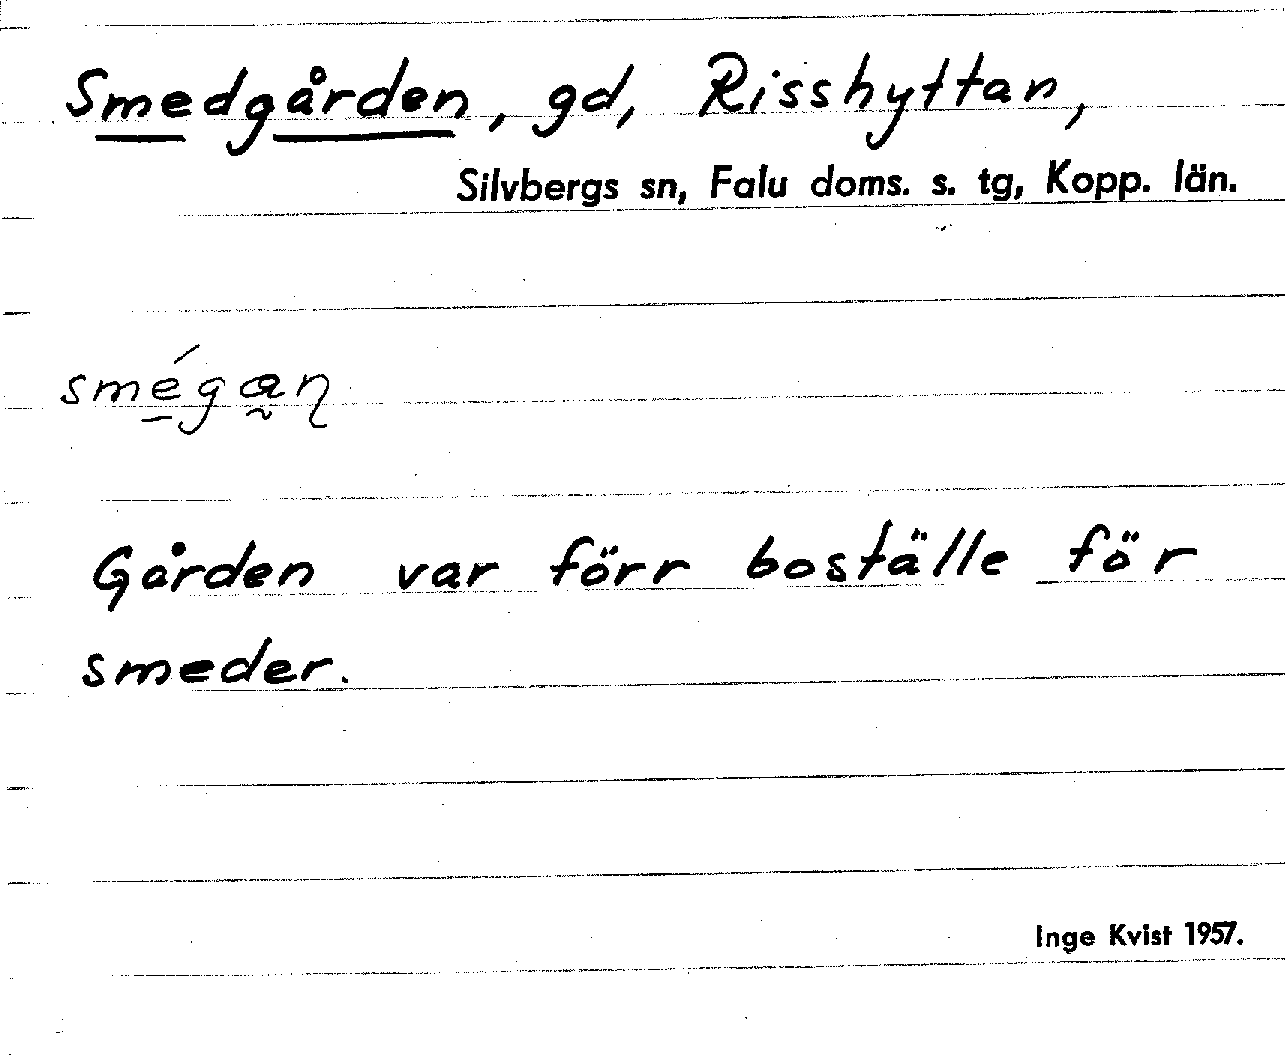 Smedgården, gd, Risshyttan,
Silvbergs sn, Falu doms. s. tg, Kopp. län.
smégaɳ
Gården var förr boställe för
smeder.
Inge Kvist 1957.